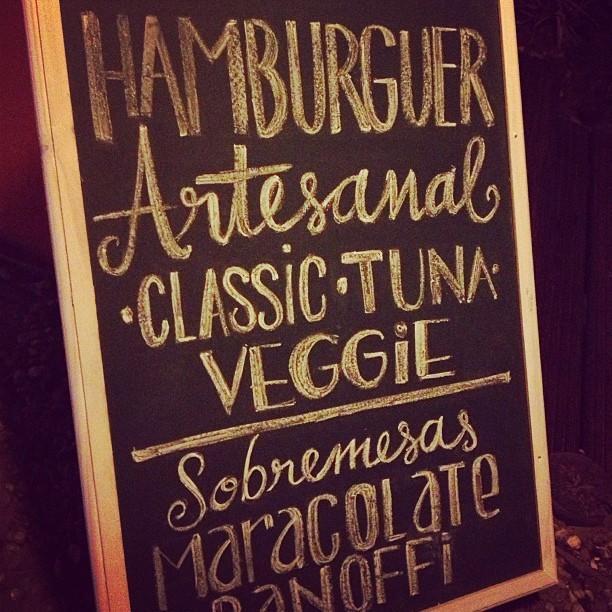 HAMBURGUER
Artesanal
·CLASSiC·TUNA·
VEGGiE
Sobremesas
MaraCOLate
BANOFFi